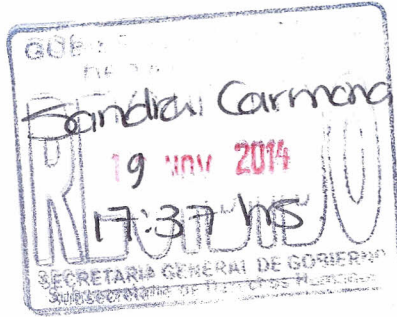 Sandra Carmona
19 NOV 2014
17:37 hs
SECRETARIA GENERAL DE GOBIERNO
Subsecretaria de Derechos Humanos